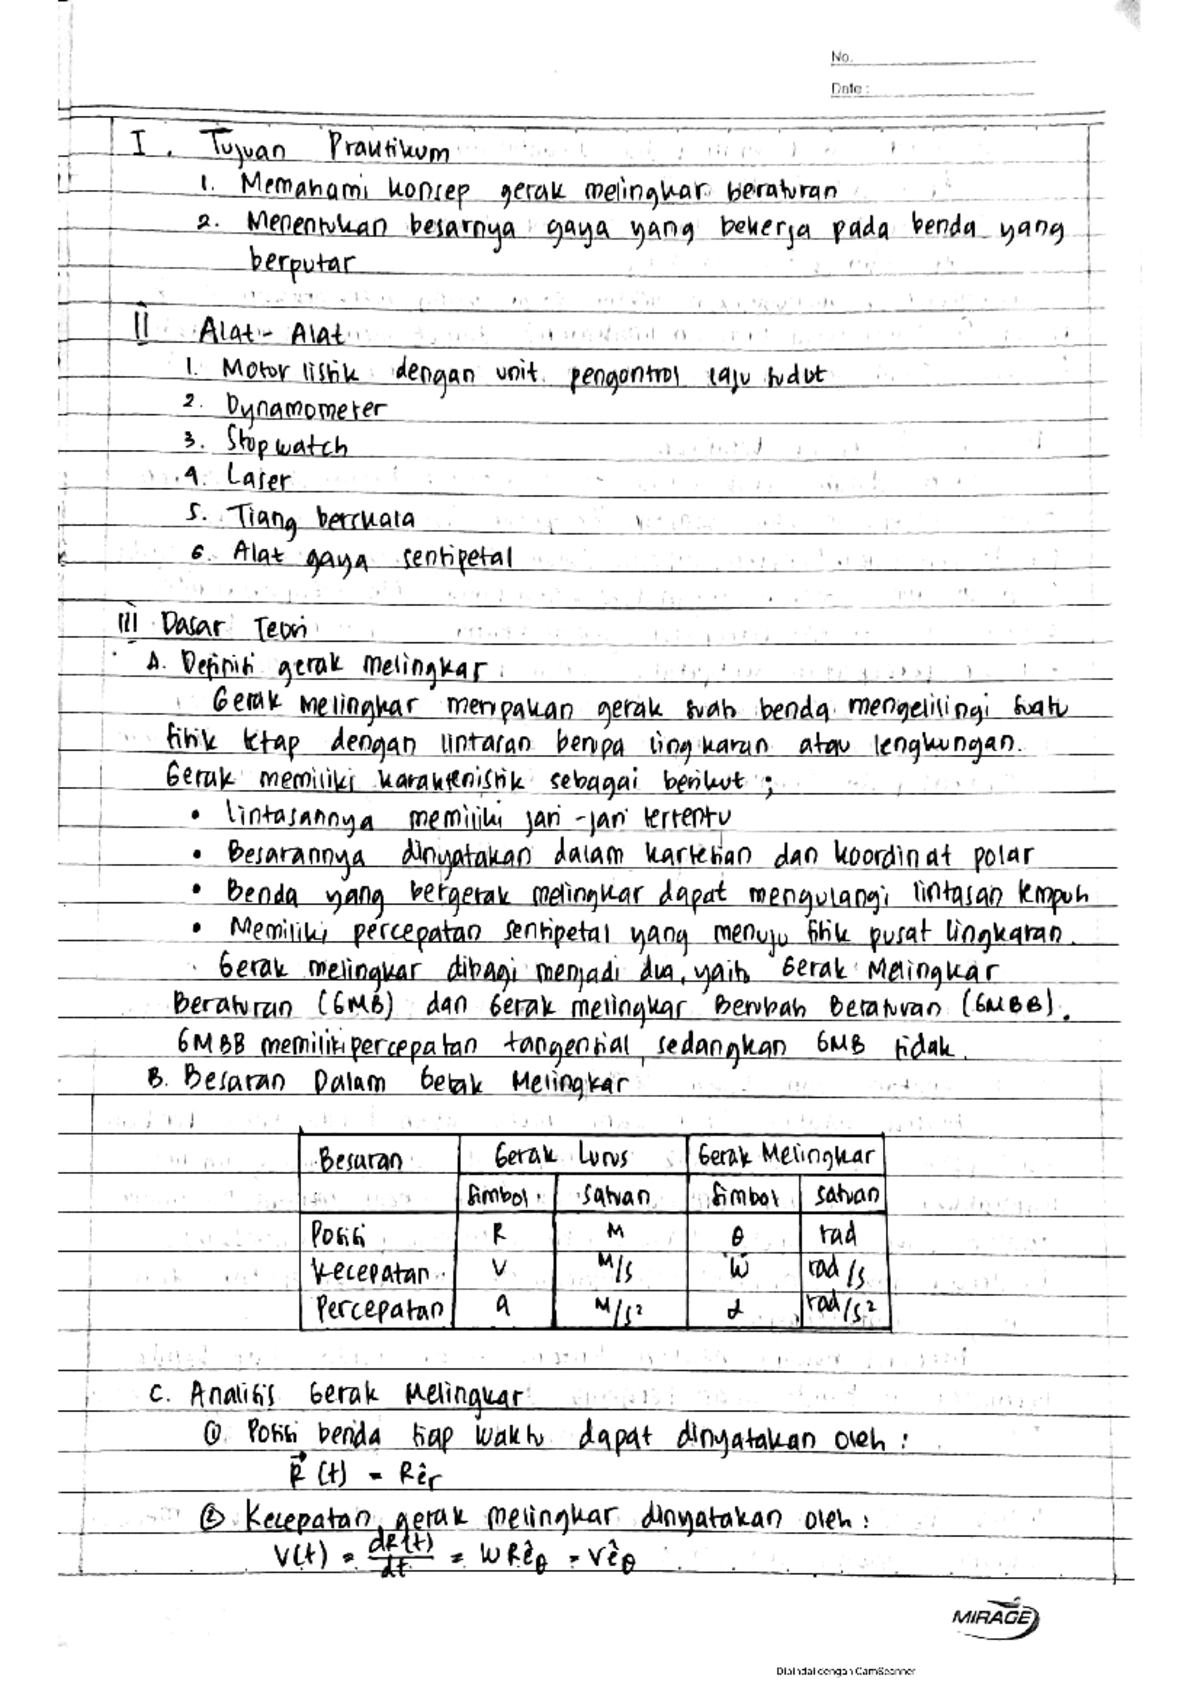 No.
Date :
I. Tujuan Praktikum
1. Memahami konsep gerak melingkar beraturan
2. Menentukan besarnya gaya yang bekerja pada benda yang
berputar
II Alat - Alat
1. Motor listik dengan unit pengontrol laju sudut
2. Dynamometer
3. Stopwatch
4. Laser
5. Tiang berskala
6. Alat gaya sentipetal
III Dasar Teori
A. Definisi gerak melingkar
Gerak melingkar merupakan gerak suatu benda mengelilingi suatu
titik tetap dengan lintasan berupa lingkaran atau lengkungan.
Gerak memiliki karakteristik sebagai berikut ;
• Lintasannya memiliki jari-jari tertentu
• Besarannya dinyatakan dalam kartesian dan koordinat polar
• Benda yang bergerak melingkar dapat mengulangi lintasan tempuh
• Memiliki percepatan sentipetal yang menuju titik pusat lingkaran.
Gerak melingkar dibagi menjadi dua, yaitu Gerak Melingkar
Beraturan (GMB) dan Gerak melingkar Berubah Beraturan (GMBB).
GMBB memiliki percepatan tangensial, sedangkan GMB tidak.
B. Besaran Dalam Gerak Melingkar
Besaran Gerak Lurus Gerak Melingkar
Simbol Satuan Simbol Satuan
Posisi R M θ rad
Kecepatan V M/s W rad/s
Percepatan a M/s² α rad/s²
C. Analisis Gerak Melingkar
① Posisi benda tiap waktu dapat dinyatakan oleh :
R⃗ (t) = Rêr
② Kecepatan gerak melingkar dinyatakan oleh :
V(t) = dR(t)/dt = WRêθ = Vêθ
MIRAGE
Dipindai dengan CamScanner